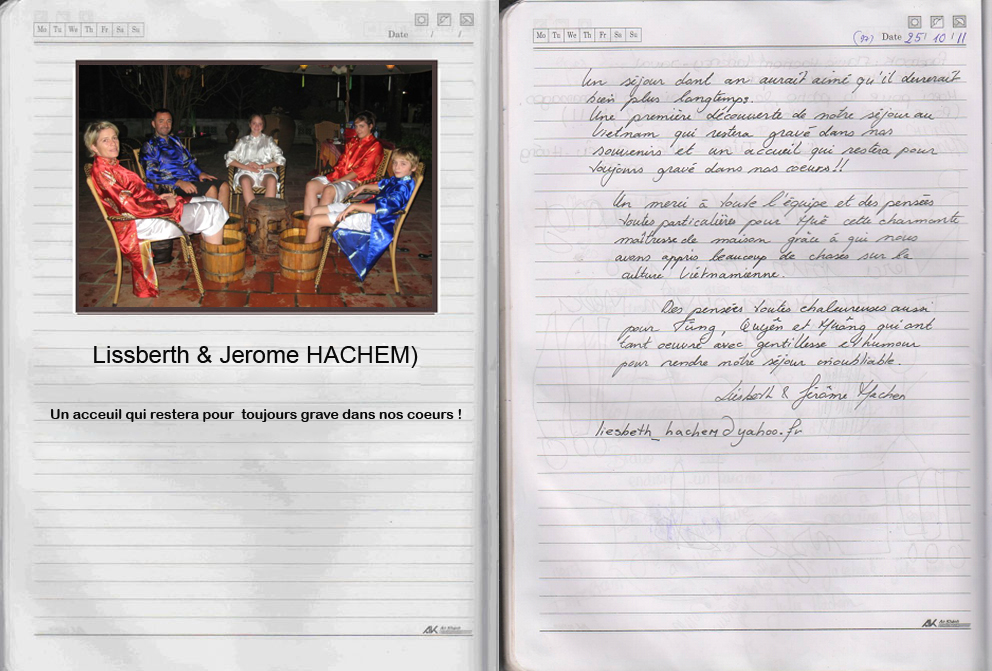 Mo Tu We Th Fr Sa Su
Date / /
Lissberth & Jerome HACHEM)
Un acceuil qui restera pour toujours grave dans nos coeurs !
AK An Khánh
Mo Tu We Th Fr Sa Su
(92) Date 25/ 10 /11
Un séjour dont on aurait aimé qu'il durerait
bien plus longtemps.
Une première découverte de notre séjour au
Vietnam qui restera gravé dans nos
souvenirs et un accueil qui restera pour
toujours gravé dans nos coeurs !!
Un merci à toute l'équipe et des pensées
toutes particulières pour Huê cette charmante
maîtresse de maison grâce à qui nous
avons appris beaucoup de choses sur la
culture Vietnamienne.
Des pensées toutes chaleureuses aussi
pour Tùng, Quyên et Hương qui ont
tant oeuvré avec gentillesse et humour
pour rendre nôtre séjour inoubliable.
Liesbeth & Jérôme Hachem
liesbeth_hachem@yahoo.fr
AK An Khánh